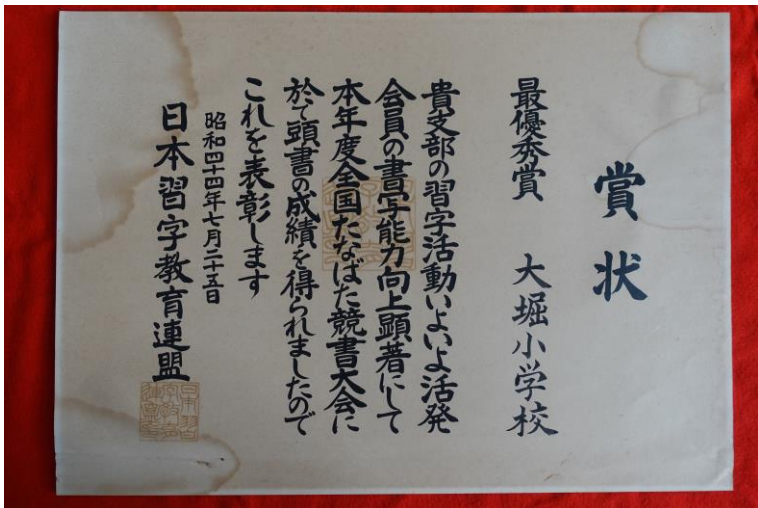 賞状
最優秀賞 大堀小学校
貴支部の習字活動いよいよ活発
会員の書写能力向上顕著にして
本年度全国たなばた競書大会に
於て頭書の成績を得られましたので
これを表彰します
昭和四十四年七月二十五日
日本習字教育連盟